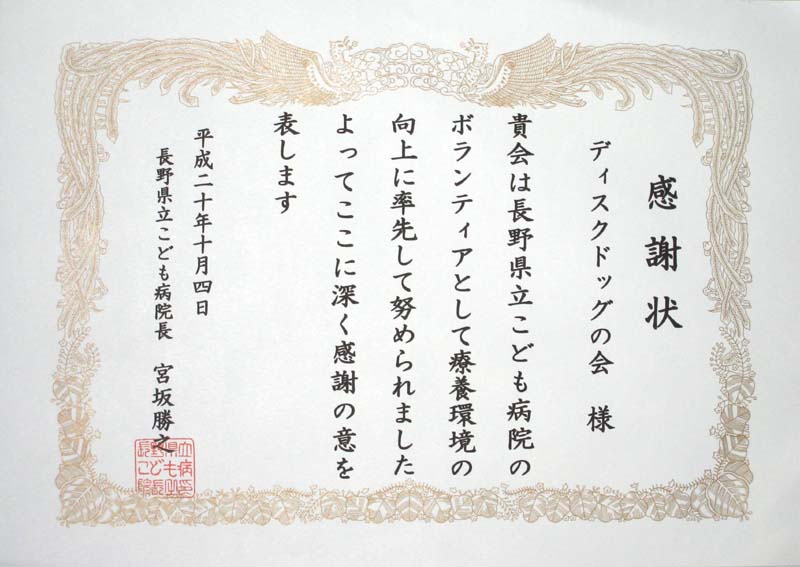 感謝状
ディスクドッグの会 様
貴会は長野県立こども病院の
ボランティアとして療養環境の
向上に率先して努められました
よってここに深く感謝の意を
表します
平成二十年十月四日
長野県立こども病院長 宮坂勝之